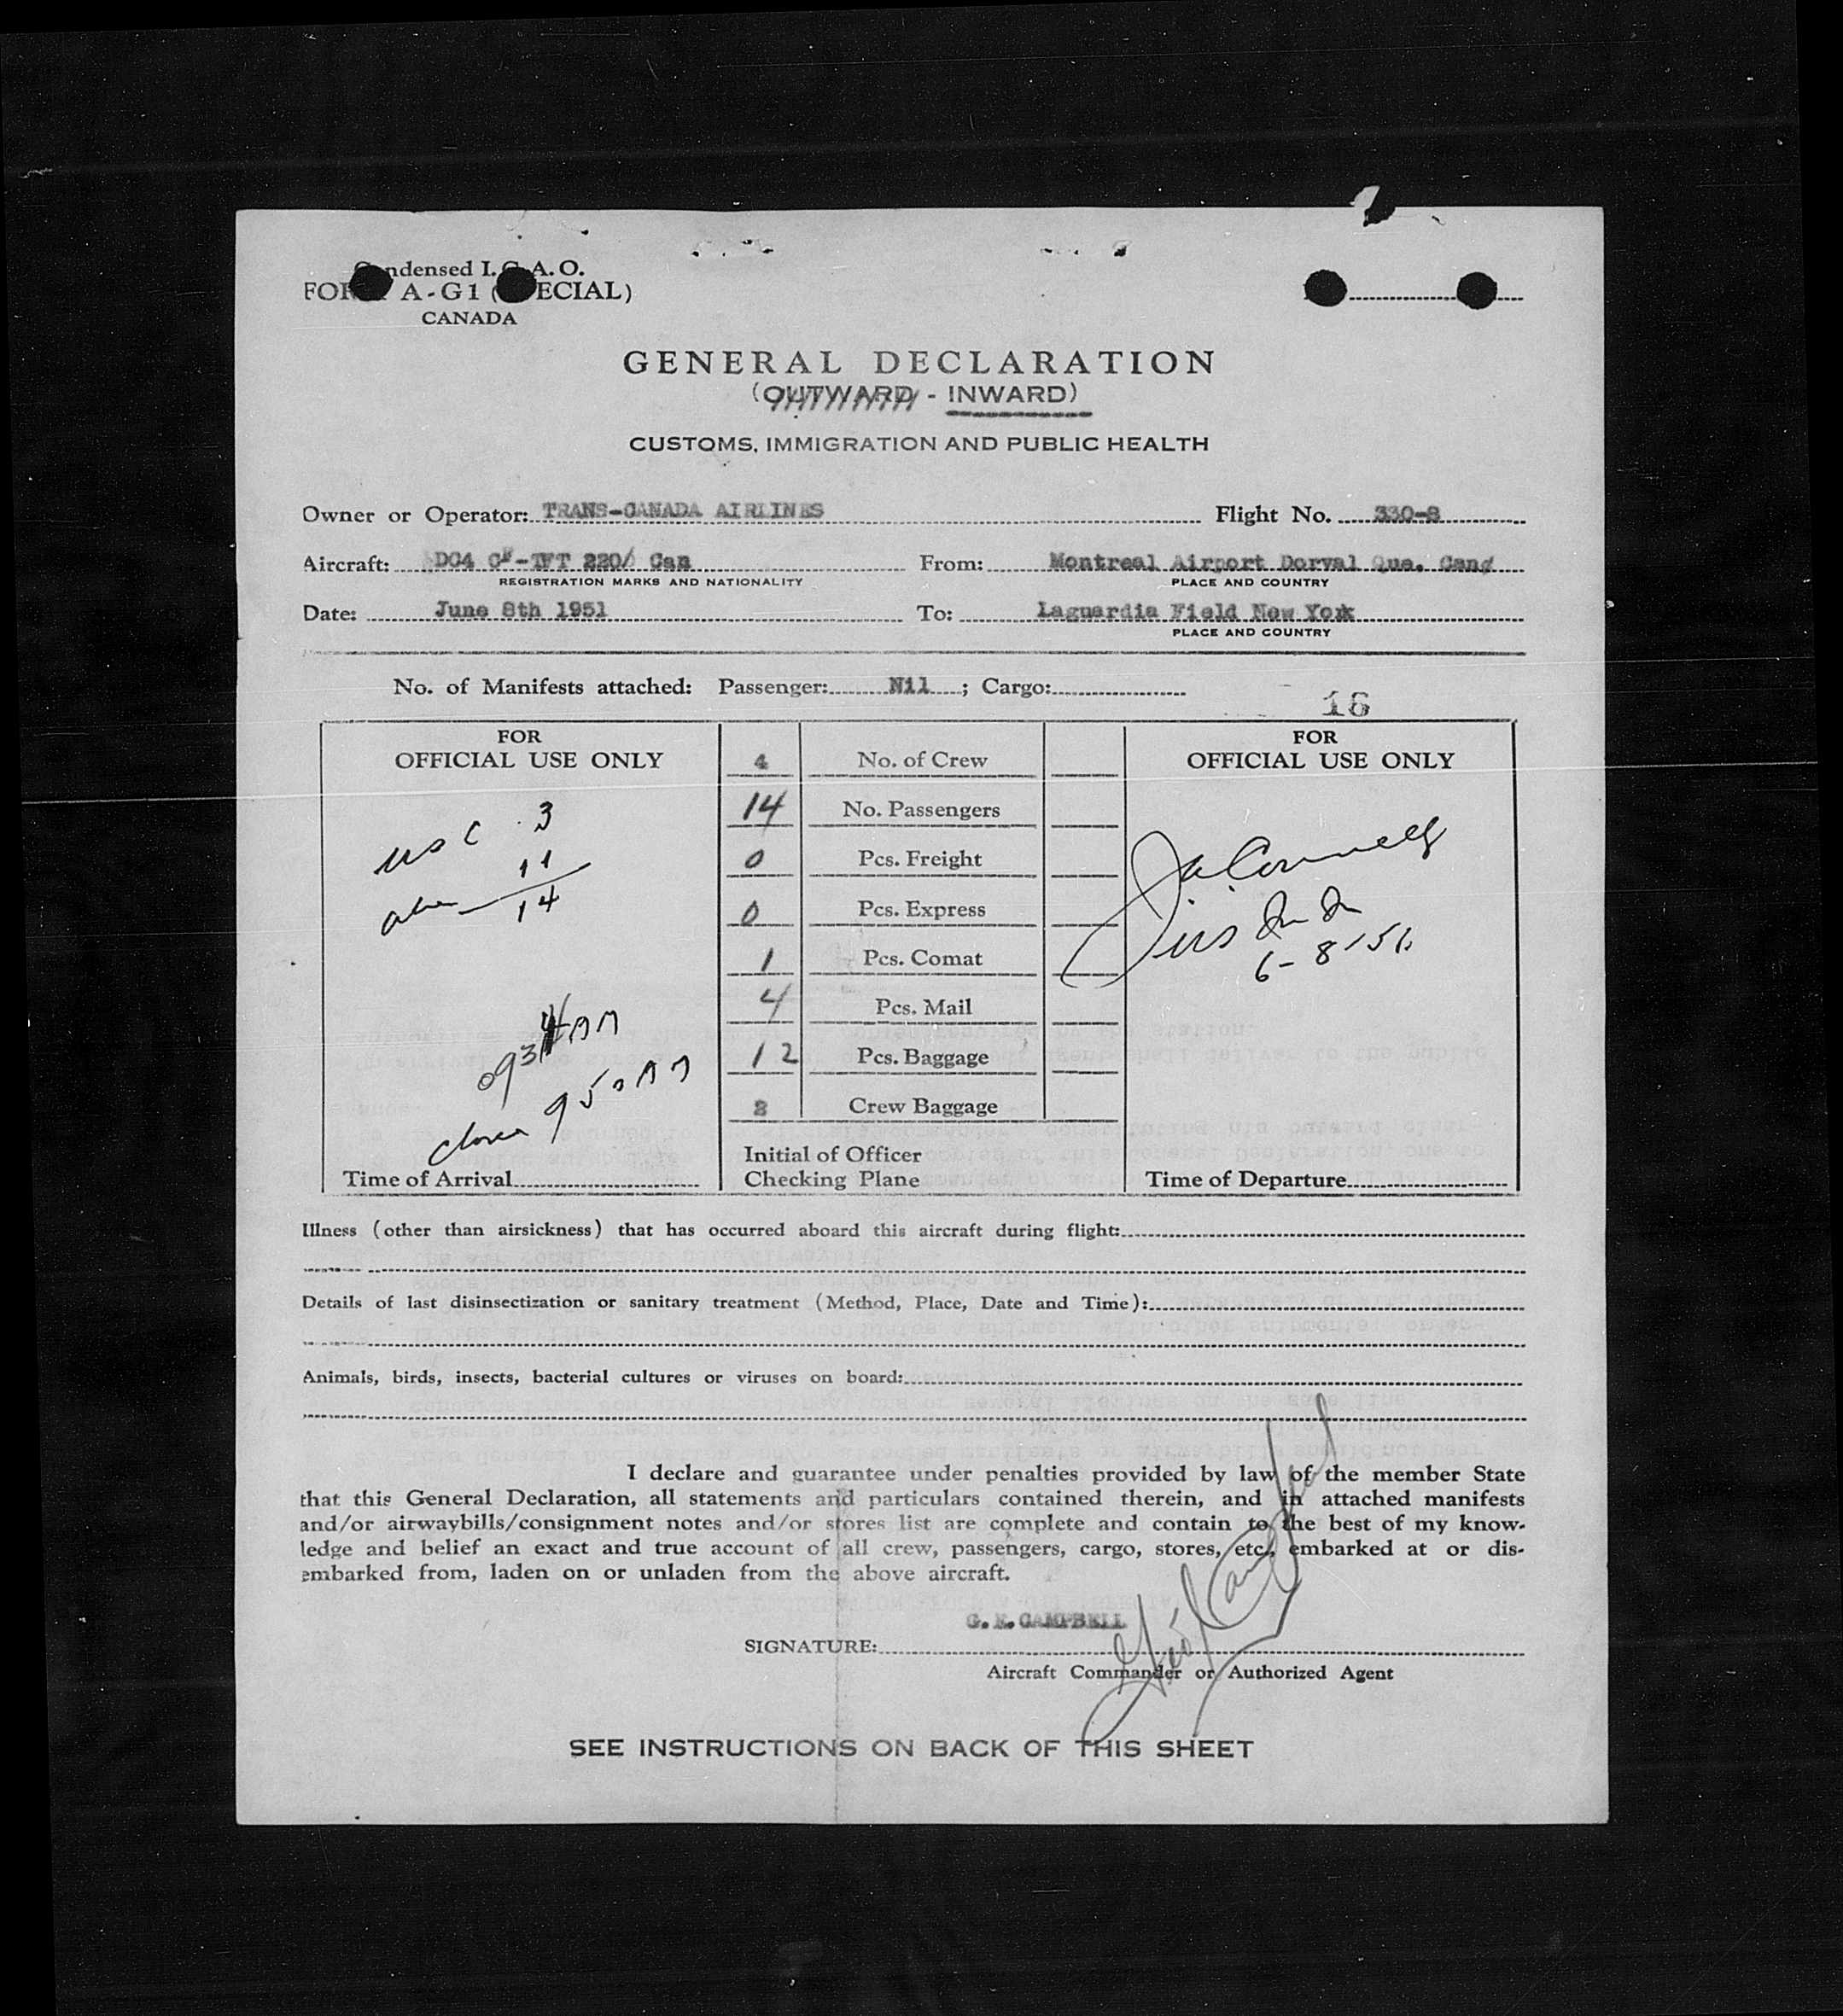 Condensed I.C.A.O.
FORM A-G1 (SPECIAL)
CANADA
GENERAL DECLARATION
(OUTWARD - INWARD)
CUSTOMS, IMMIGRATION AND PUBLIC HEALTH
Owner or Operator: TRANS-CANADA AIRLINES Flight No. 330-8
Aircraft: DC4 CF-TFT 220/ Can From: Montreal Airport Dorval Que. Cand
REGISTRATION MARKS AND NATIONALITY PLACE AND COUNTRY
Date: June 8th 1951 To: Laguardia Field New York
PLACE AND COUNTRY
No. of Manifests attached: Passenger: Nil ; Cargo:
16
FOR
OFFICIAL USE ONLY
USC 3
11
14
093 AM
950 AM
Time of Arrival
4 No. of Crew
14 No. Passengers
0 Pcs. Freight
0 Pcs. Express
1 Pcs. Comat
4 Pcs. Mail
12 Pcs. Baggage
Crew Baggage
Initial of Officer
Checking Plane
FOR
OFFICIAL USE ONLY
6-8-51
Time of Departure
Illness (other than airsickness) that has occurred aboard this aircraft during flight:
Details of last disinsectization or sanitary treatment (Method, Place, Date and Time):
Animals, birds, insects, bacterial cultures or viruses on board:
I declare and guarantee under penalties provided by law of the member State
that this General Declaration, all statements and particulars contained therein, and in attached manifests
and/or airwaybills/consignment notes and/or stores list are complete and contain to the best of my know-
ledge and belief an exact and true account of all crew, passengers, cargo, stores, etc., embarked at or dis-
embarked from, laden on or unladen from the above aircraft.
G. E. CAMPBELL
SIGNATURE:
Aircraft Commander or Authorized Agent
SEE INSTRUCTIONS ON BACK OF THIS SHEET